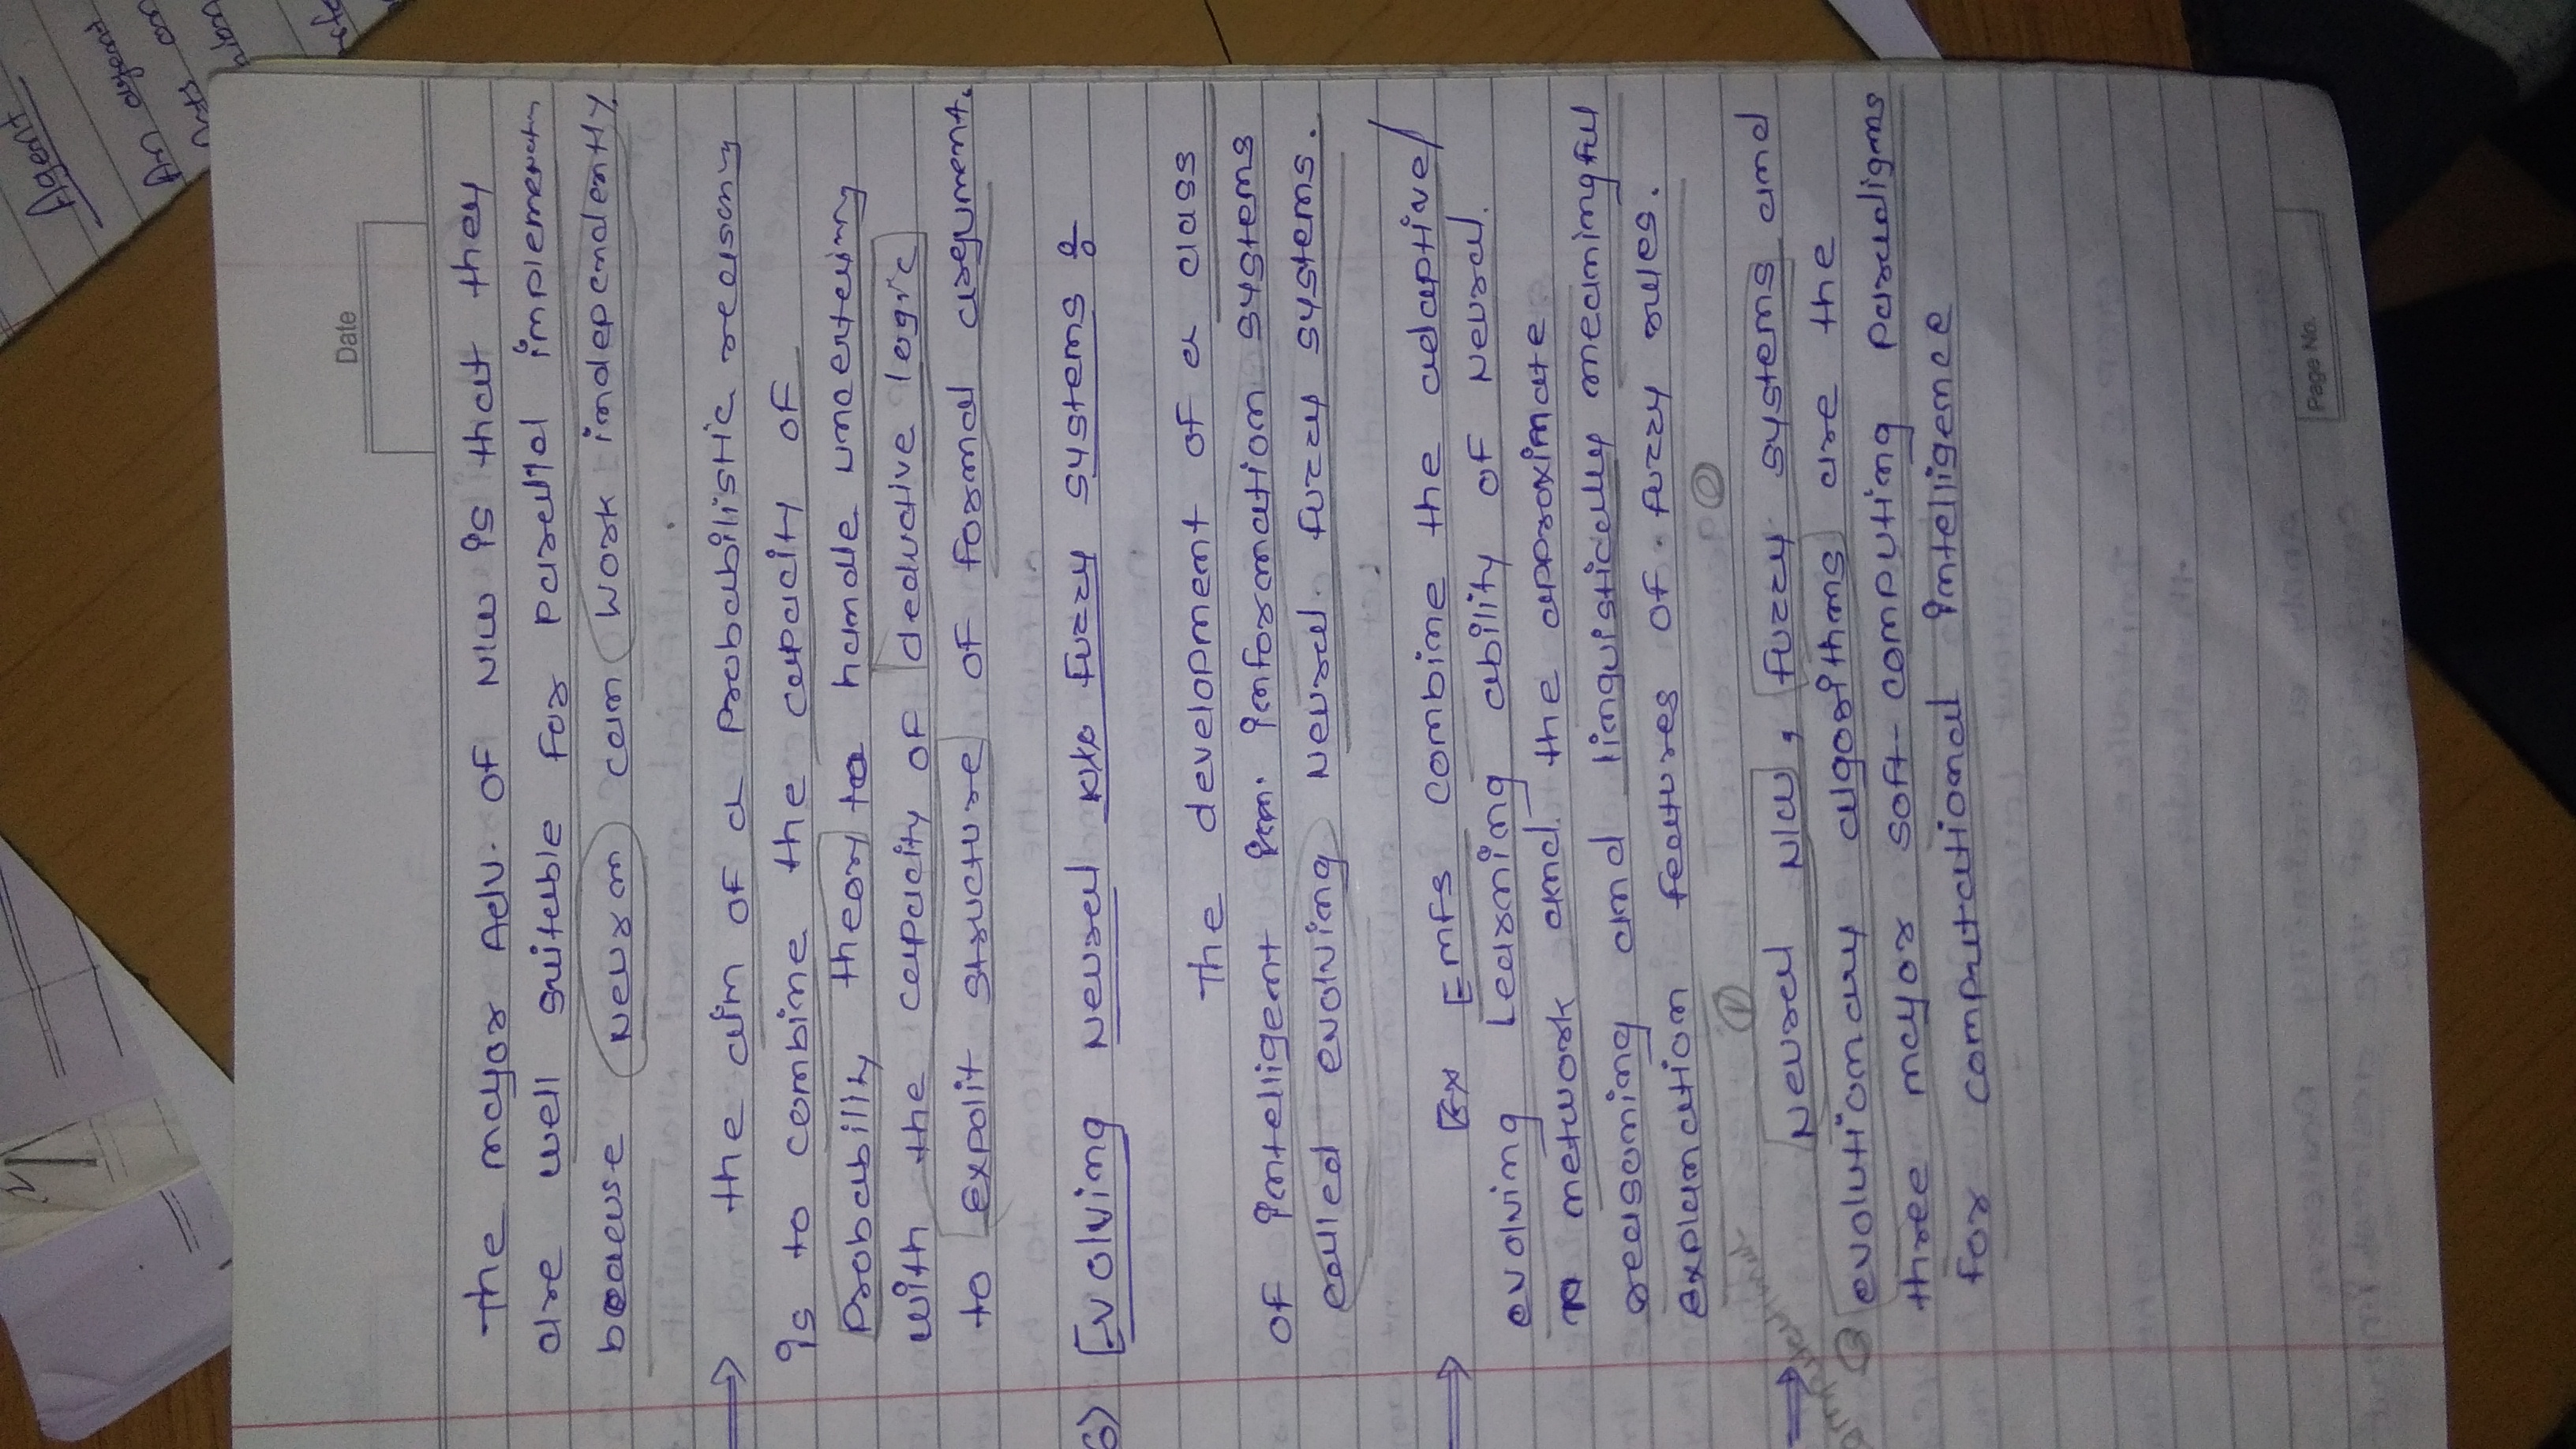 Agent
An agent
Date
the mayor Adv. of N/w is that they
are well suitable for parellel implement
because Neuron can work independently.
⇒ the aim of a probabilistic reasoning
is to combine the capacity of
probability theory to handle uncertainty
with the capacity of deductive logic
to expolit structure of formal argument.
6) Evolving Neural fuzzy systems :
The development of a class
of intelligent information systems
called evolving Neural fuzzy systems.
⇒ Ex ENFS combine the adaptive/
evolving Learning ability of Neural
network and the approximate
reasoning and linguistically meaningful
explanation features of fuzzy rules.
① ②
⇒ Neural N/w, fuzzy systems and
③ evolutionary algorithms are the
three mayor soft-computing paradigms
for computational intelligence
Page No.